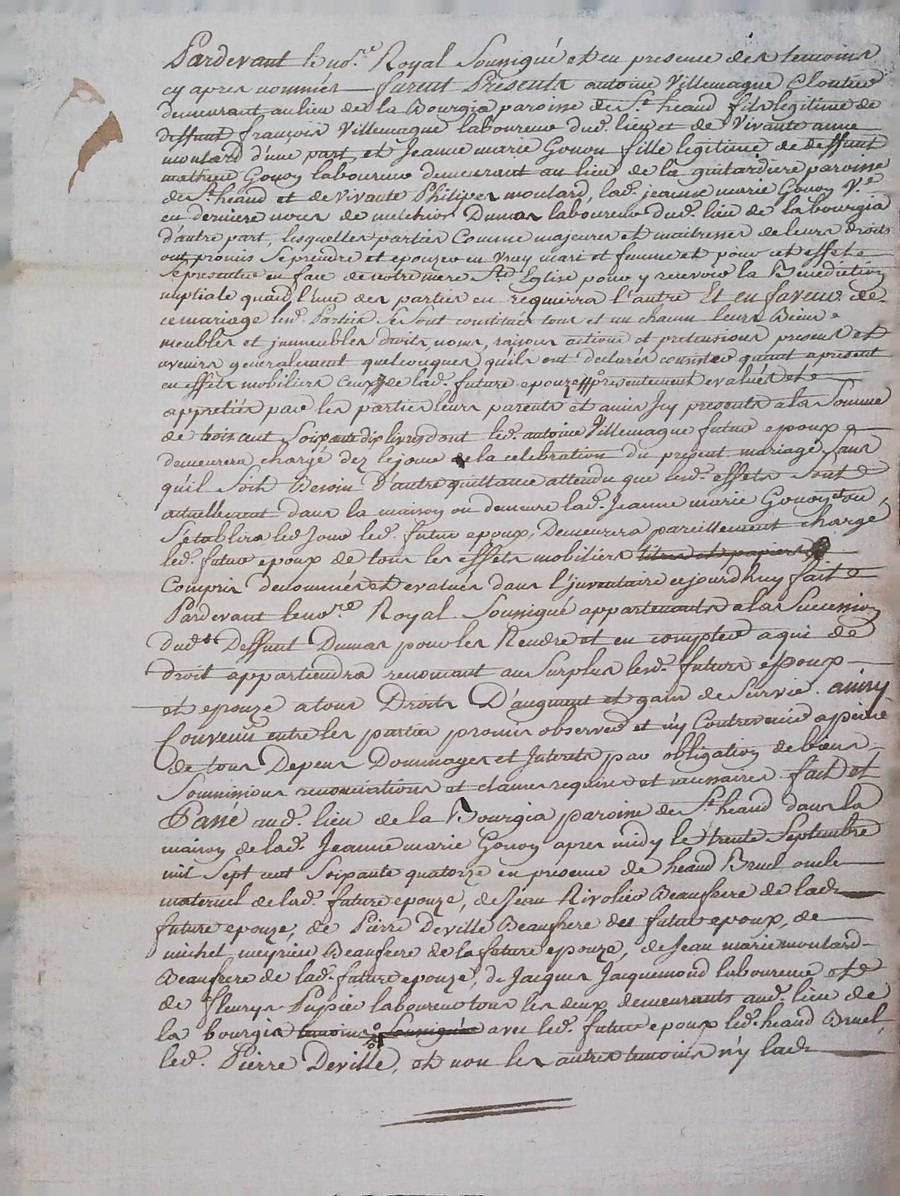 Pardevant le no.re Royal Soussigné et en presence des temoins
cy apres nommés furent Présents antoine Villemagne Cloutier
demeurant au lieu de la Bourgia paroisse de St. heand fils legitime de
deffunt françois Villemagne laboureur dud. lieu et de Vivante anne
moulard d'une part, et Jeanne marie Gonon fille legitime de deffunt
mathieu Gonon laboureur demeurant au lieu de la guitardiere paroisse
de St. heand et de vivante Philipes moulard, lad. jeanne marie Gonon Ve.
en derniere noces de melchior Dumas laboureur dud. lieu de la bourgia
d'autre part, lesquelles parties Comme majeures et maitresses de leurs droits
ont promis se prendre et epouser en vray mari et femme et pour cet effet
se presenter en face de notre mere Ste. Eglise pour y recevoir la Benediction
nuptiale quand l'une des parties en requerra l'autre Et en faveur de
ce mariage lesd. Parties se sont constitués tous et un chacun leurs Biens
meubles et jmmeubles droits, noms, raisons actions et pretensions presents et
avenirs generalement quelconques qu'ils ont declarés consister quant apresent
en effets mobiliers Ceux de lad. future epouze presentement evalués et
appretiés par les parties leurs parents et amis Jcy presents a la Somme
de trois cent Soixante dix livres dont led. antoine Villemagne futur epoux
demeurera chargé dez le jour de la celebration du present mariage, sans
qu'il soit Besoin D'autre quittance attendu que lesd. effets sont
actuellement dans la maison ou demeure lad. Jeanne marie Gonon et ou
s'etablira led. Jour led. futur epoux, Demeurera pareillement chargé
led. futur epoux de tous les effets mobiliers titres et papiers
Compris denommés et evalués dans l'jnventaire cejourd'huy fait
Pardevant le no.re Royal Soussigné appartenants a la Succession
dud. Deffunt Dumas pour les Rendre et en compter a qui de
droit appartiendra renonçant au surplus lesd. futurs epoux
et epouze a tous Droits D'augment et gain de survie. ainsy
Convenu entre les parties promis observer et n'y Contrevenir a peine
de tous Depens Dommages et Jnterets par obligation de biens
Soumissions renonciations et clauses requises et necessaires fait et
Passé aud. lieu de la Bourgia paroisse de St. heand dans la
maison de lad. Jeanne marie Gonon apres midy le trente Septembre
mil sept cent Soixante quatorze en presence de heand Bruel oncle
maternel de lad. future epouze, de Jean Rivolier Beaufrere de lad.
future epouze, de Pierre Deville Beaufrere des futur epoux, de
michel Beaufrere de la future epouze, de Jean marie moulard
Beaufrere de lad. future epouze, de Jacques Jacquemond laboureur et
de fleurys Pupier laboureur tous les deux demeurants aud. lieu de
la bourgia temoins Soussignés avec led. futur epoux led. heand Bruel
led. Pierre Deville, et non les autres temoins n'y lad.